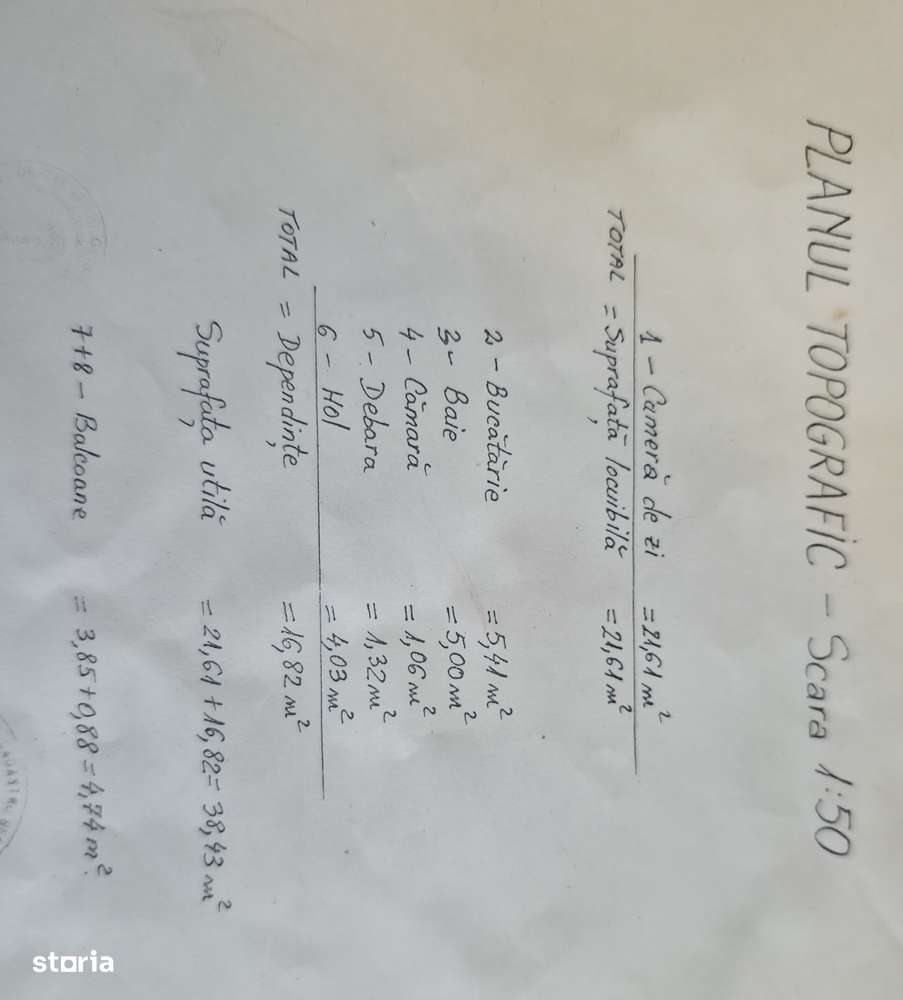 PLANUL TOPOGRAFIC - Scara 1:50
1 - Cameră de zi = 21,61 m²
TOTAL = Suprafață locuibilă = 21,61 m²
2 - Bucătărie = 5,41 m²
3 - Baie = 5,00 m²
4 - Cămară = 1,06 m²
5 - Debara = 1,32 m²
6 - Hol = 4,03 m²
TOTAL = Dependințe = 16,82 m²
Suprafața utilă = 21,61 + 16,82 = 38,43 m²
7+8 - Balcoane = 3,85+0,88 = 4,74 m².
storia